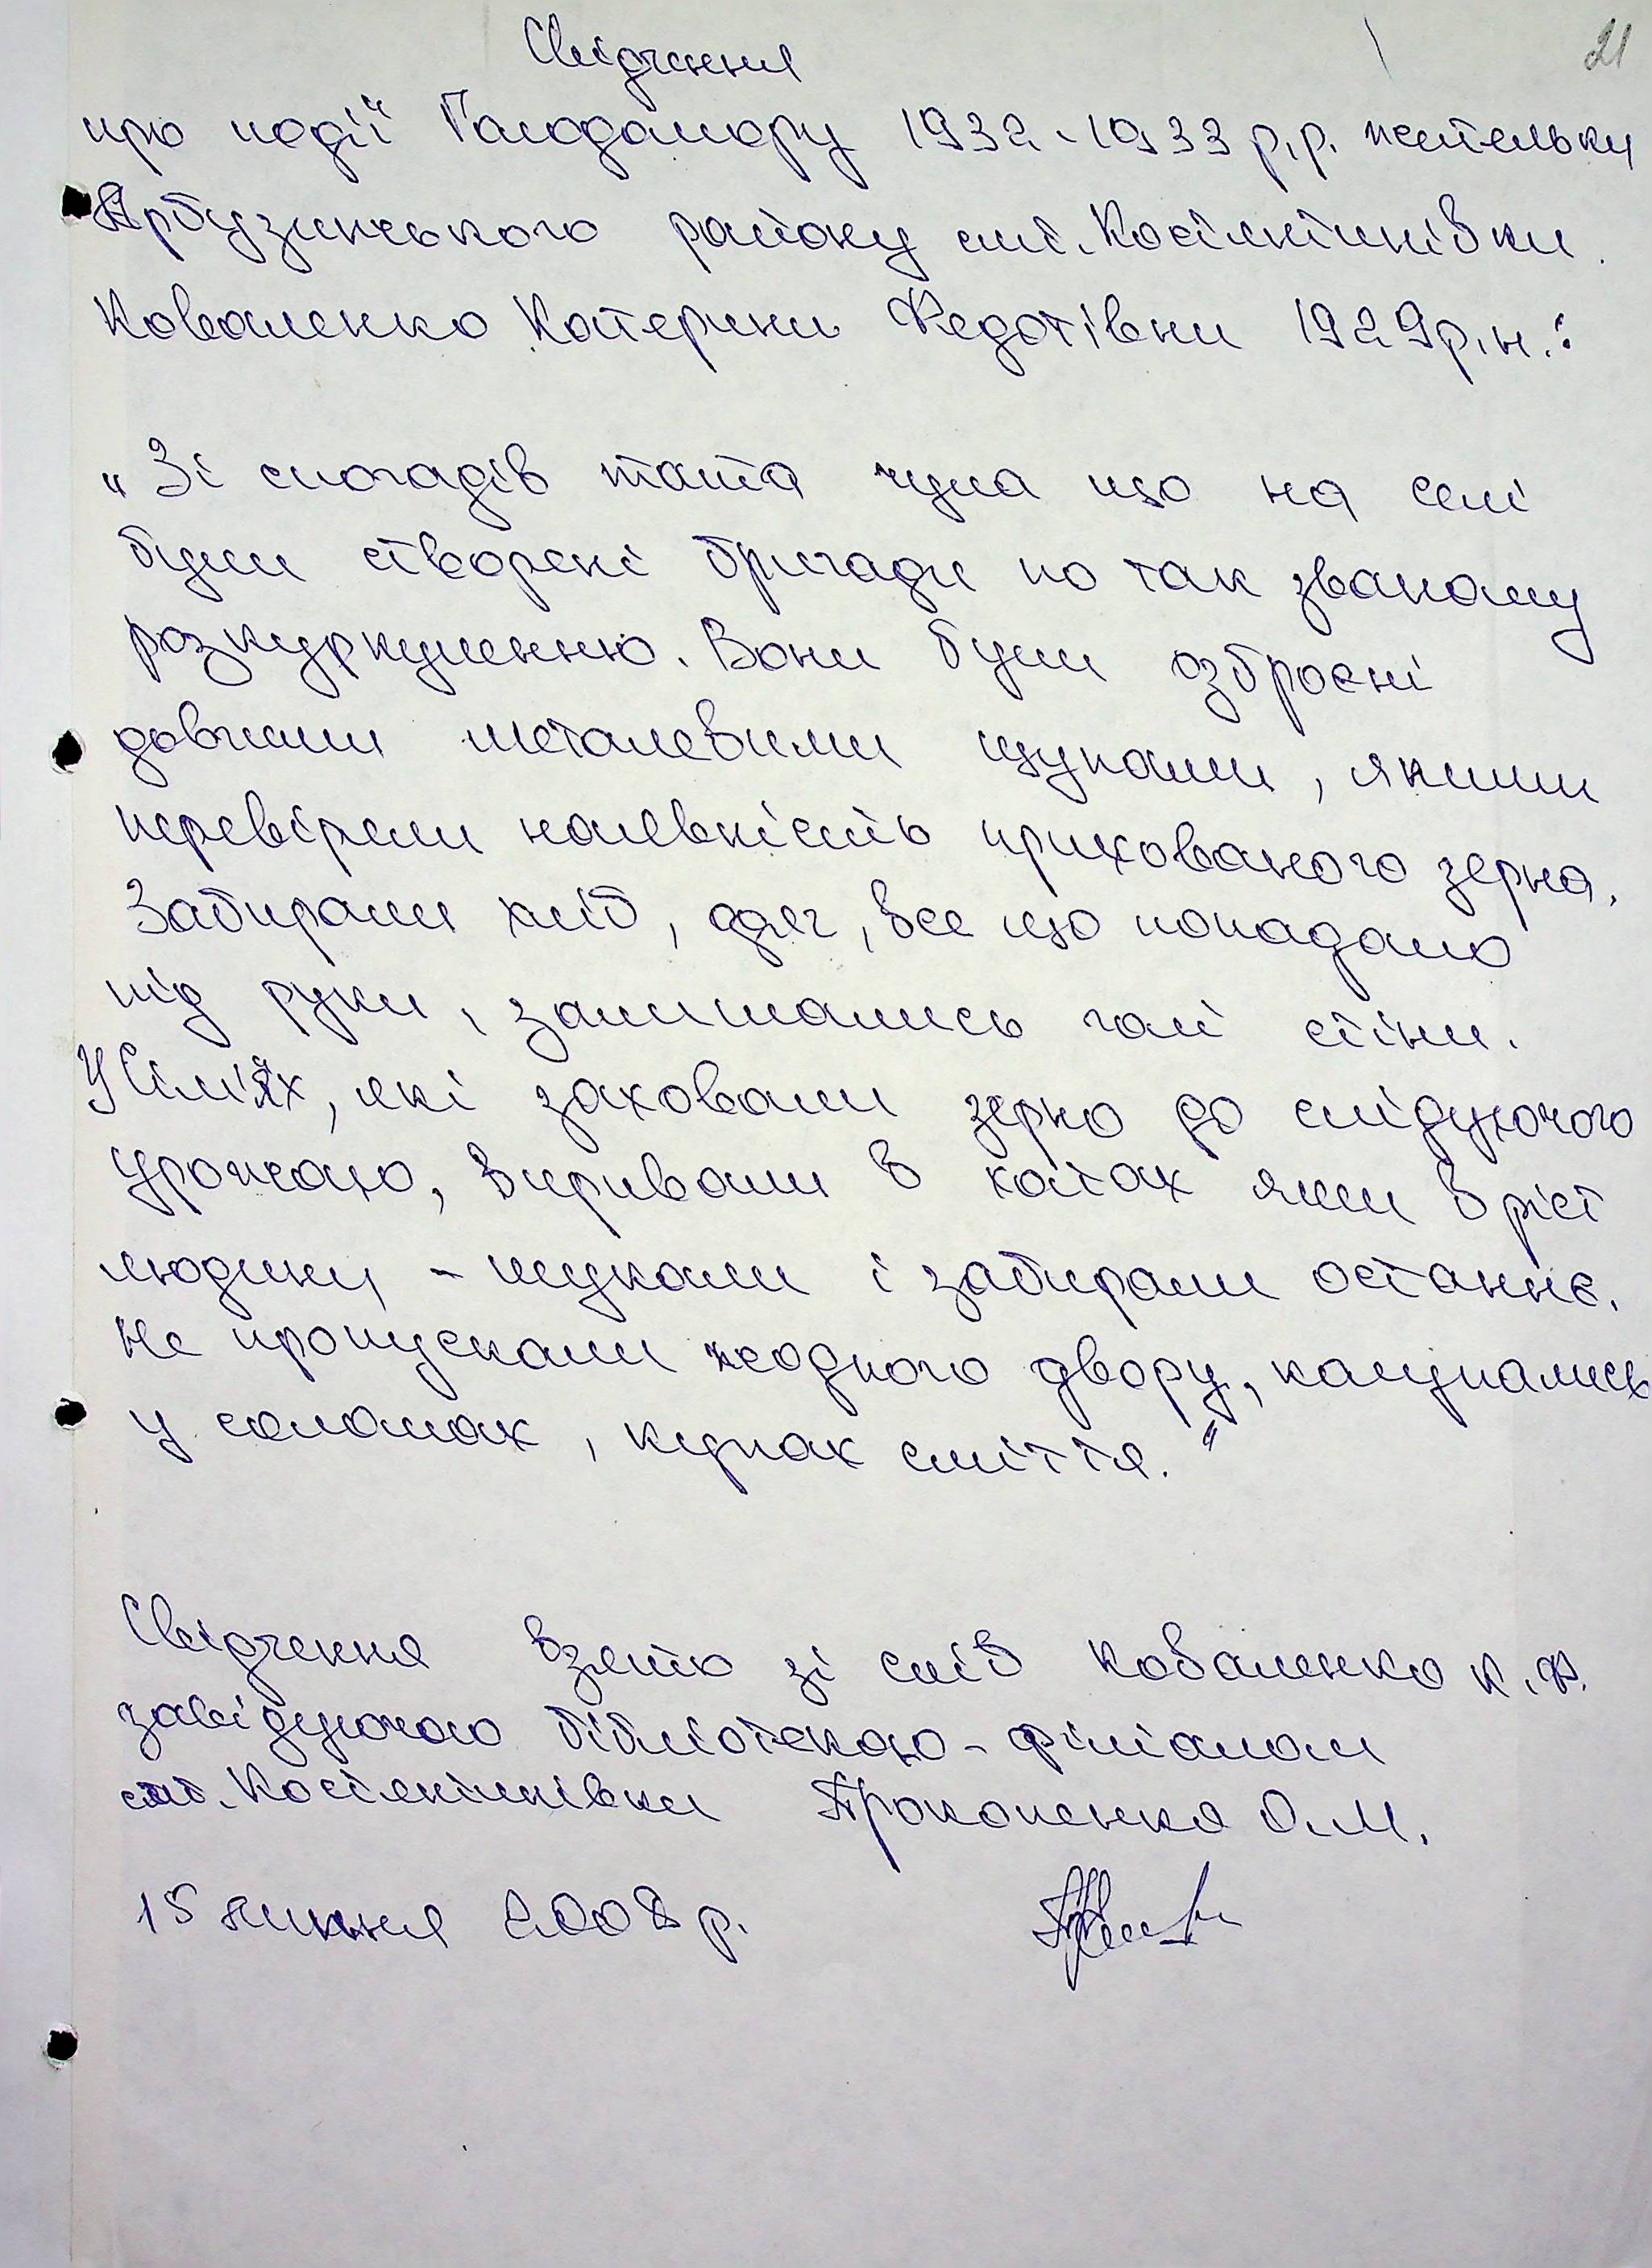 21
Свідчення
про події Голодомору 1932-1933 р.р. жительки
Арбузинського району смт. Костянтинівки
Коваленко Катерини Федотівни 1929р.н.:
„Зі спогадів тата чула що на селі
були створені бригади по так званому
розкуркуленню. Вони були озброєні
довгими металевими щупами, якими
перевіряли наявність прихованого зерна.
Забирали хліб, одяг, все що попадало
під руки, залишались голі стіни.
У сім'ях, які заховали зерно до слідуючого
урожаю, виривали в хатах ями в ріст
людини - шукали і забирали останнє.
Не пропускали жодного двору, капирались
у соломах, купах сміття."
Свідчення взято зі слів Коваленко К.Ф.
завідуючою бібліотекою-філіалом
смт. Костянтинівки Прокопенко О.М.
15 липня 2008 р.